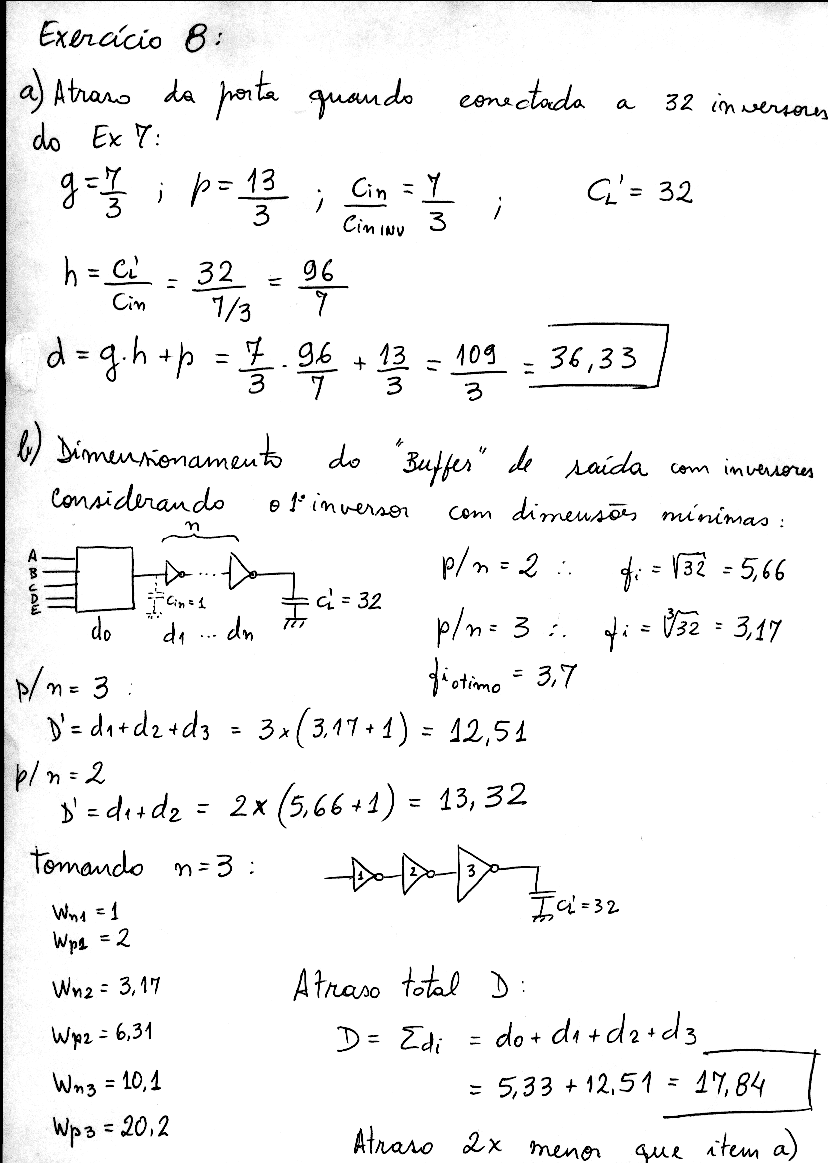 Exercício 8:
a) Atraso da porta quando conectada a 32 inversores
do Ex 7:
g = 7/3 ; p = 13/3 ; Cin/Cin INV = 7/3 ; CL' = 32
h = CL'/Cin = 32/7/3 = 96/7
d = g.h + p = 7/3 . 96/7 + 13/3 = 109/3 = 36,33
b) Dimensionamento do "Buffer" de saída com inversores
considerando o 1º inversor com dimensões mínimas:
n
A
B
C
D
E
Cin = 1
CL' = 32
do d1 ... dn
p/ n = 2 ∴ fi = √32 = 5,66
p/ n = 3 ∴ fi = ∛32 = 3,17
fi otimo = 3,7
p/ n = 3 :
D' = d1 + d2 + d3 = 3 x (3,17 + 1) = 12,51
p/ n = 2
D' = d1 + d2 = 2 x (5,66 + 1) = 13,32
Tomando n = 3 :
1 2 3
CL' = 32
Wn1 = 1
Wp1 = 2
Wn2 = 3,17
Wp2 = 6,31
Wn3 = 10,1
Wp3 = 20,2
Atraso total D :
D = Σdi = do + d1 + d2 + d3
= 5,33 + 12,51 = 17,84
Atraso 2x menor que item a)